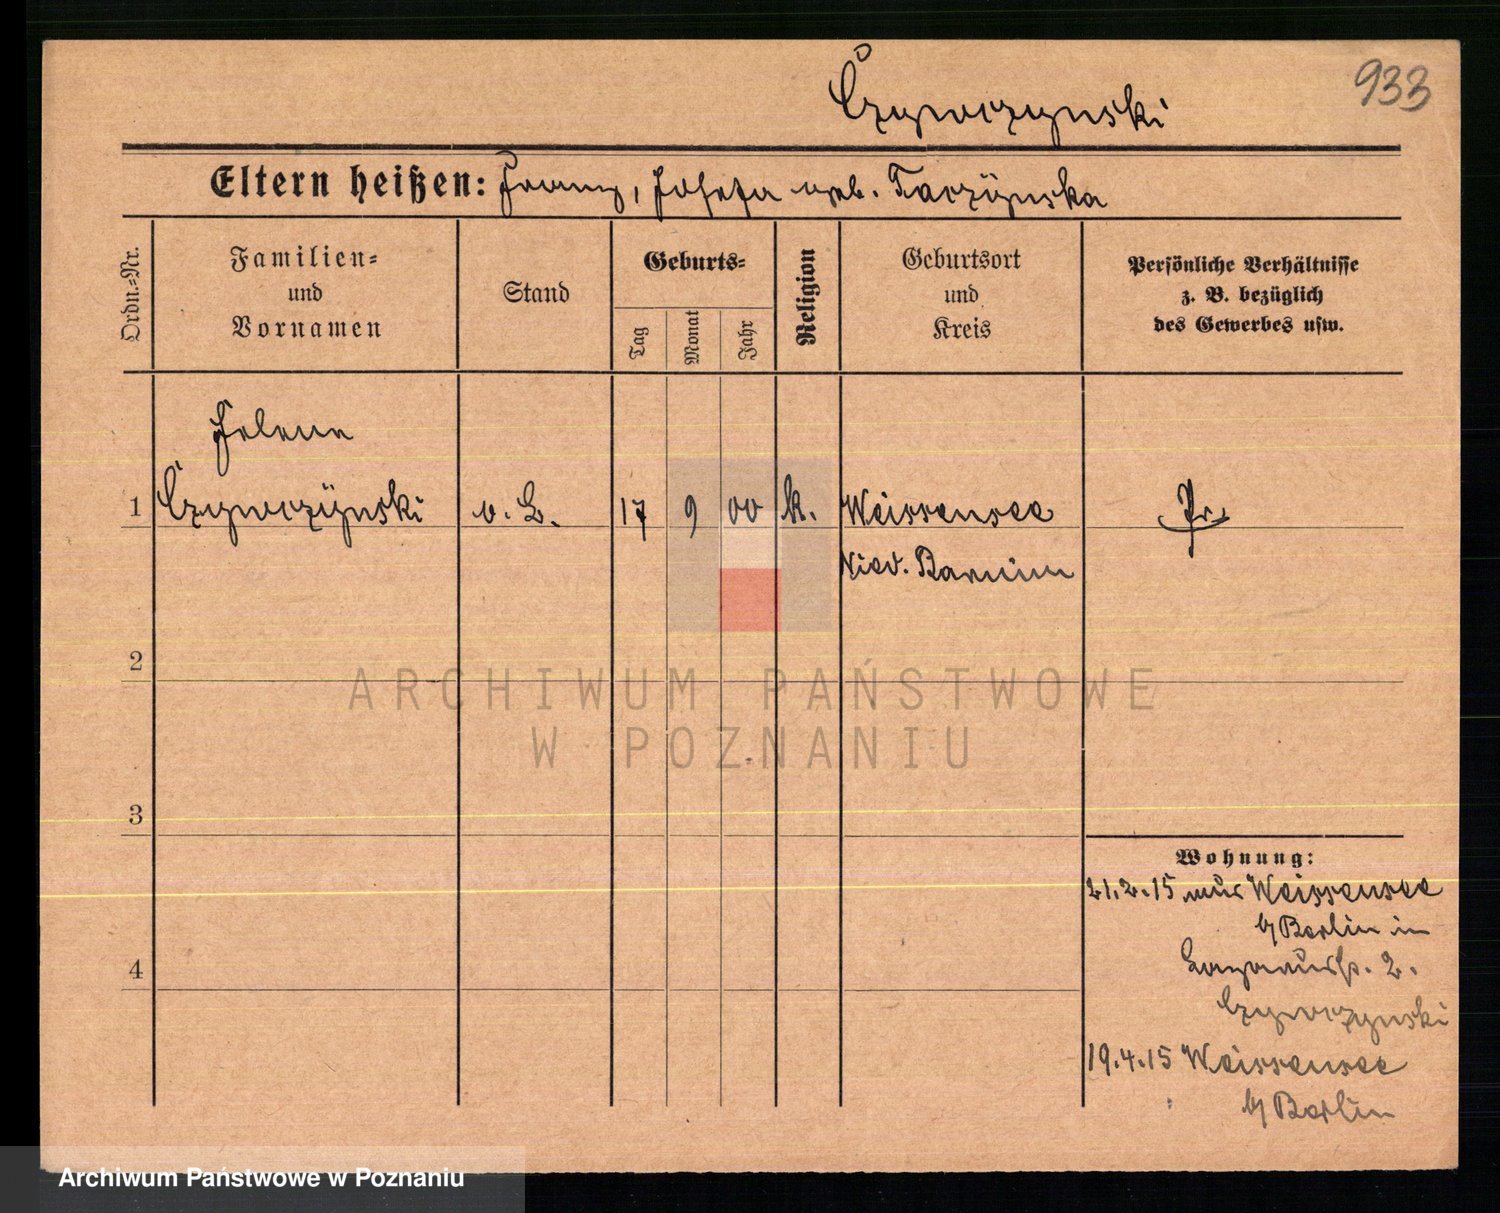 933
Czyworzynski
Eltern heißen: Franz, Josefa geb. Tarzÿnska
Ordn.-Nr.
Familien-
und
Vornamen
Stand
Geburts-
Tag
Monat
Jahr
Religion
Geburtsort
und
Kreis
Persönliche Verhältnisse
z. B. bezüglich
des Gewerbes usw.
Helene
1 v. B. 17 9 00 k. Weissensee Pr.
Nied. Barnim
2
ARCHIWUM PAŃSTWOWE
W POZNANIU
3
Wohnung:
21.2.15 aus Weissensee
b/Berlin in
2.
4
19.4.15 Weissensee
b/Berlin
Archiwum Państwowe w Poznaniu